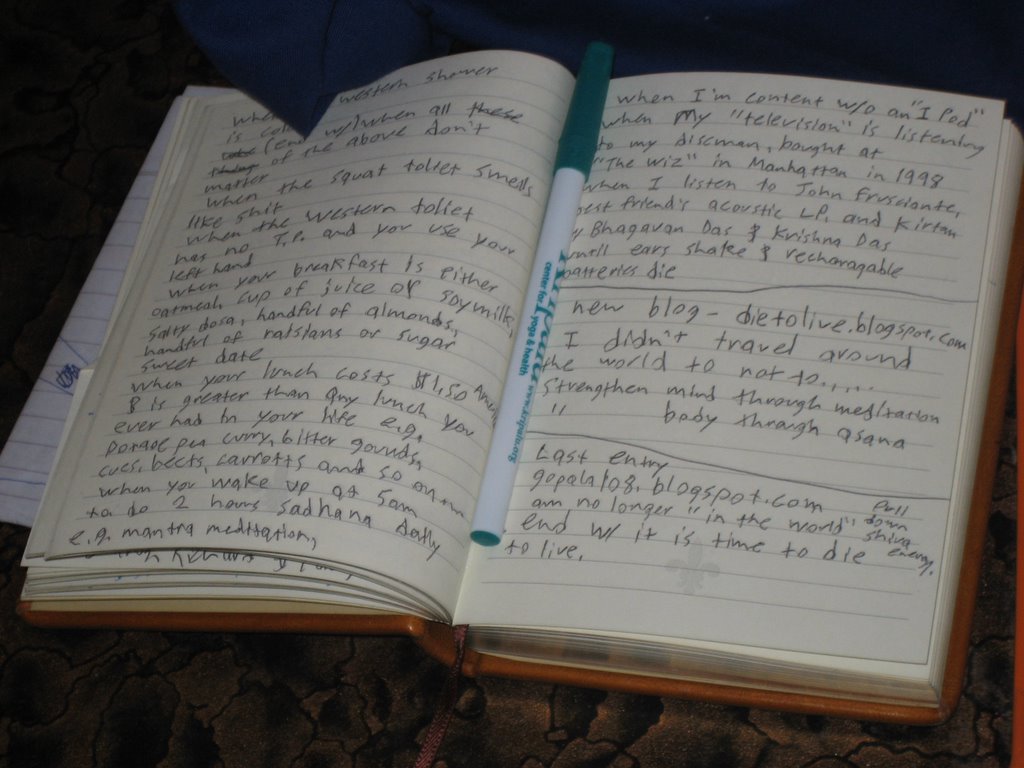 western shower
when
is (end w/) when all these
of the above don't
matter
when the squat toliet smells
like shit
when the western toliet
has no T.P. and you use your
left hand
when your breakfast is either
oatmeal cup of juice or soymilk,
salty dosa, handful of almonds,
handful of raisians or sugar
sweet date
when your lunch costs $1,50
& is greater than any lunch you
ever had in your life e.g.
pea curry, bitter gourds,
cucs, beets, carrotts and so on
when you wake up at 5am
to do 2 hours sadhana daily
e.g. mantra meditation,
when I'm content w/o an "I Pod"
when my "television" is listening
to my discman, bought at
"The Wiz" in Manhattan in 1998
when I listen to John Frusciante,
best friend's acoustic LP, and Kirtan
by Bhagavan Das & Krishna Das
until ears shake & rechargable
batteries die
new blog - dietolive.blogspot.com
I didn't travel around
the world to not to.....
strengthen mind through meditation
" body through asana
Last entry
gopala108.blogspot.com
am no longer "in the world"
end w/ it is time to die
to live.
pull
down
shiva
energy.
center for yoga & health www.kripalu.org